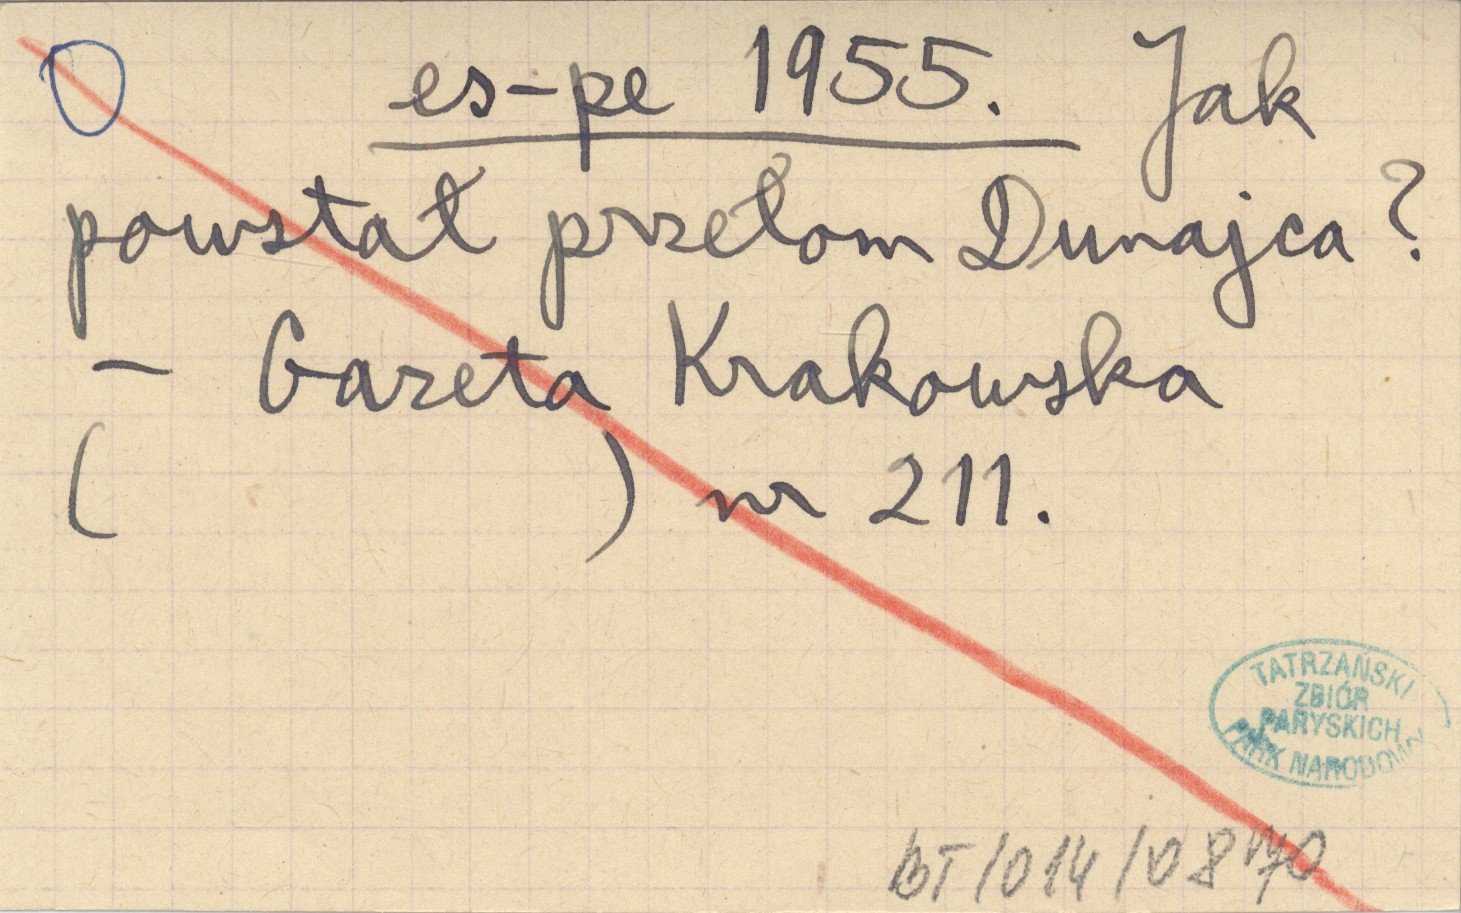 es-pe 1955. Jak
powstał przełom Dunajca?
– Gazeta Krakowska
(          ) nr 211.
TATRZAŃSKI
ZBIÓR
PARYSKICH
PARK NARODOWY
BT/014/0870